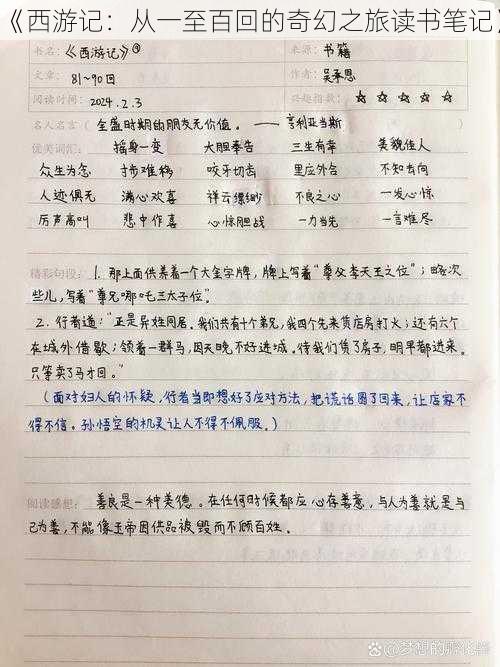 《西游记：从一至百回的奇幻之旅读书笔记》
书名：《西游记》④
来源：书籍
文章：81~90回
作者：吴承恩
阅读时间：2024.2.3
兴趣指数：☆ ☆ ☆ ☆ ☆
名人名言（ 全盛时期的朋友无价值。 ——亨利亚当斯
优美词汇： 摇身一变 大胆奉告 三生有幸 美貌佳人
众生为念 寸步难移 咬牙切齿 里应外合 不知去向
人迹俱无 满心欢喜 祥云缥缈 不良之心 一发心惊
厉声高叫 悲中作喜 心惊胆战 一力当先 一言难尽
精彩句段： 1. 那上面供养着一个大金字牌，牌上写着“尊父李天王之位”；略次
些儿，写着“尊兄哪吒三太子位”。
2. 行者道：“正是异姓同居。我们共有十个弟兄，我四个先来赁店房打火；还有六个
在城外借歇；领着一群马，因天晚不好进城。待我们赁了房子，明早都进来。
只等卖了马才回。”
（面对妇人的怀疑，行者当即想好了应对方法，把谎话圆了回来，让店家不
得不信。孙悟空的机灵让人不得不佩服。）
阅读感想： 善良是一种美德。在任何时候都应心存善意，与人为善就是与
己为善，不能像玉帝因供品被毁而不顾百姓。